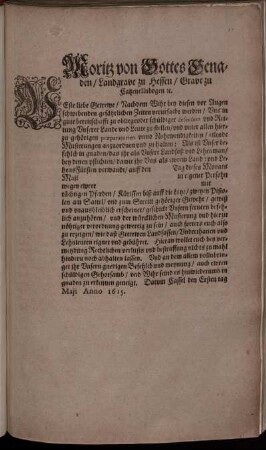 Moritz von Gottes Gena-
den / Landgrave zu Hessen / Grave zu
Catzenelnbogen ꝛc.
Veste liebe Getrewe / Nachdem Wihr bey diesen vor Augen
schwebenden gefährlichen Zeiten verursacht werden / Uns in
gute bereitschafft zu obligender schuldiger defension und Ret-
tung Unserer Lande und Leute zu stellen / und unter allen hier-
zu gehörigen præparation und Nohtwendigkeiten / etliche
Musterungen anzuordnen und zu halten: Als ist Unser be-
fehlch in gnaden / das ihr als Unser Landsaß und Lehenman /
bey denen pflichten / damit ihr Uns als ewrem Land- und Le-
hensFürsten verwandt / auff den Tag dieses Monats
Maij in eigener Persohn
wegen ewrer mit
rüstigen Pferden / Kürassen biß auff die knye / zweyen Pisto-
len am Sattel / und zum Streit gehöriger Gewehr / gewiß
und ohnaußbleiblich erscheinet / geschickt Unsern fernern be-
scheidt anzuhören / und der endlichen Musterung und hierzu
nötiger verordnung gewertig zu sein / auch hierin euch also
zu erzeigen / wie das Getrewen Landsassen / Underthanen und
Lehnleuten eignet und gebühret. Hieran wollet euch bey ver-
meydung Rechtlichen verlusts und bestraffung nichts zumahl
hindern noch abhalten lassen, Und an dem allem vollnbrin-
get ihr Unsern gnedigen Befehlch und meynung / auch ewern
schuldigen Gehorsamb / und Wihr seind es hinwiederumb in
gnaden zu erkennen geneigt. Datum Cassel den Ersten tag
Maij Anno 1615.